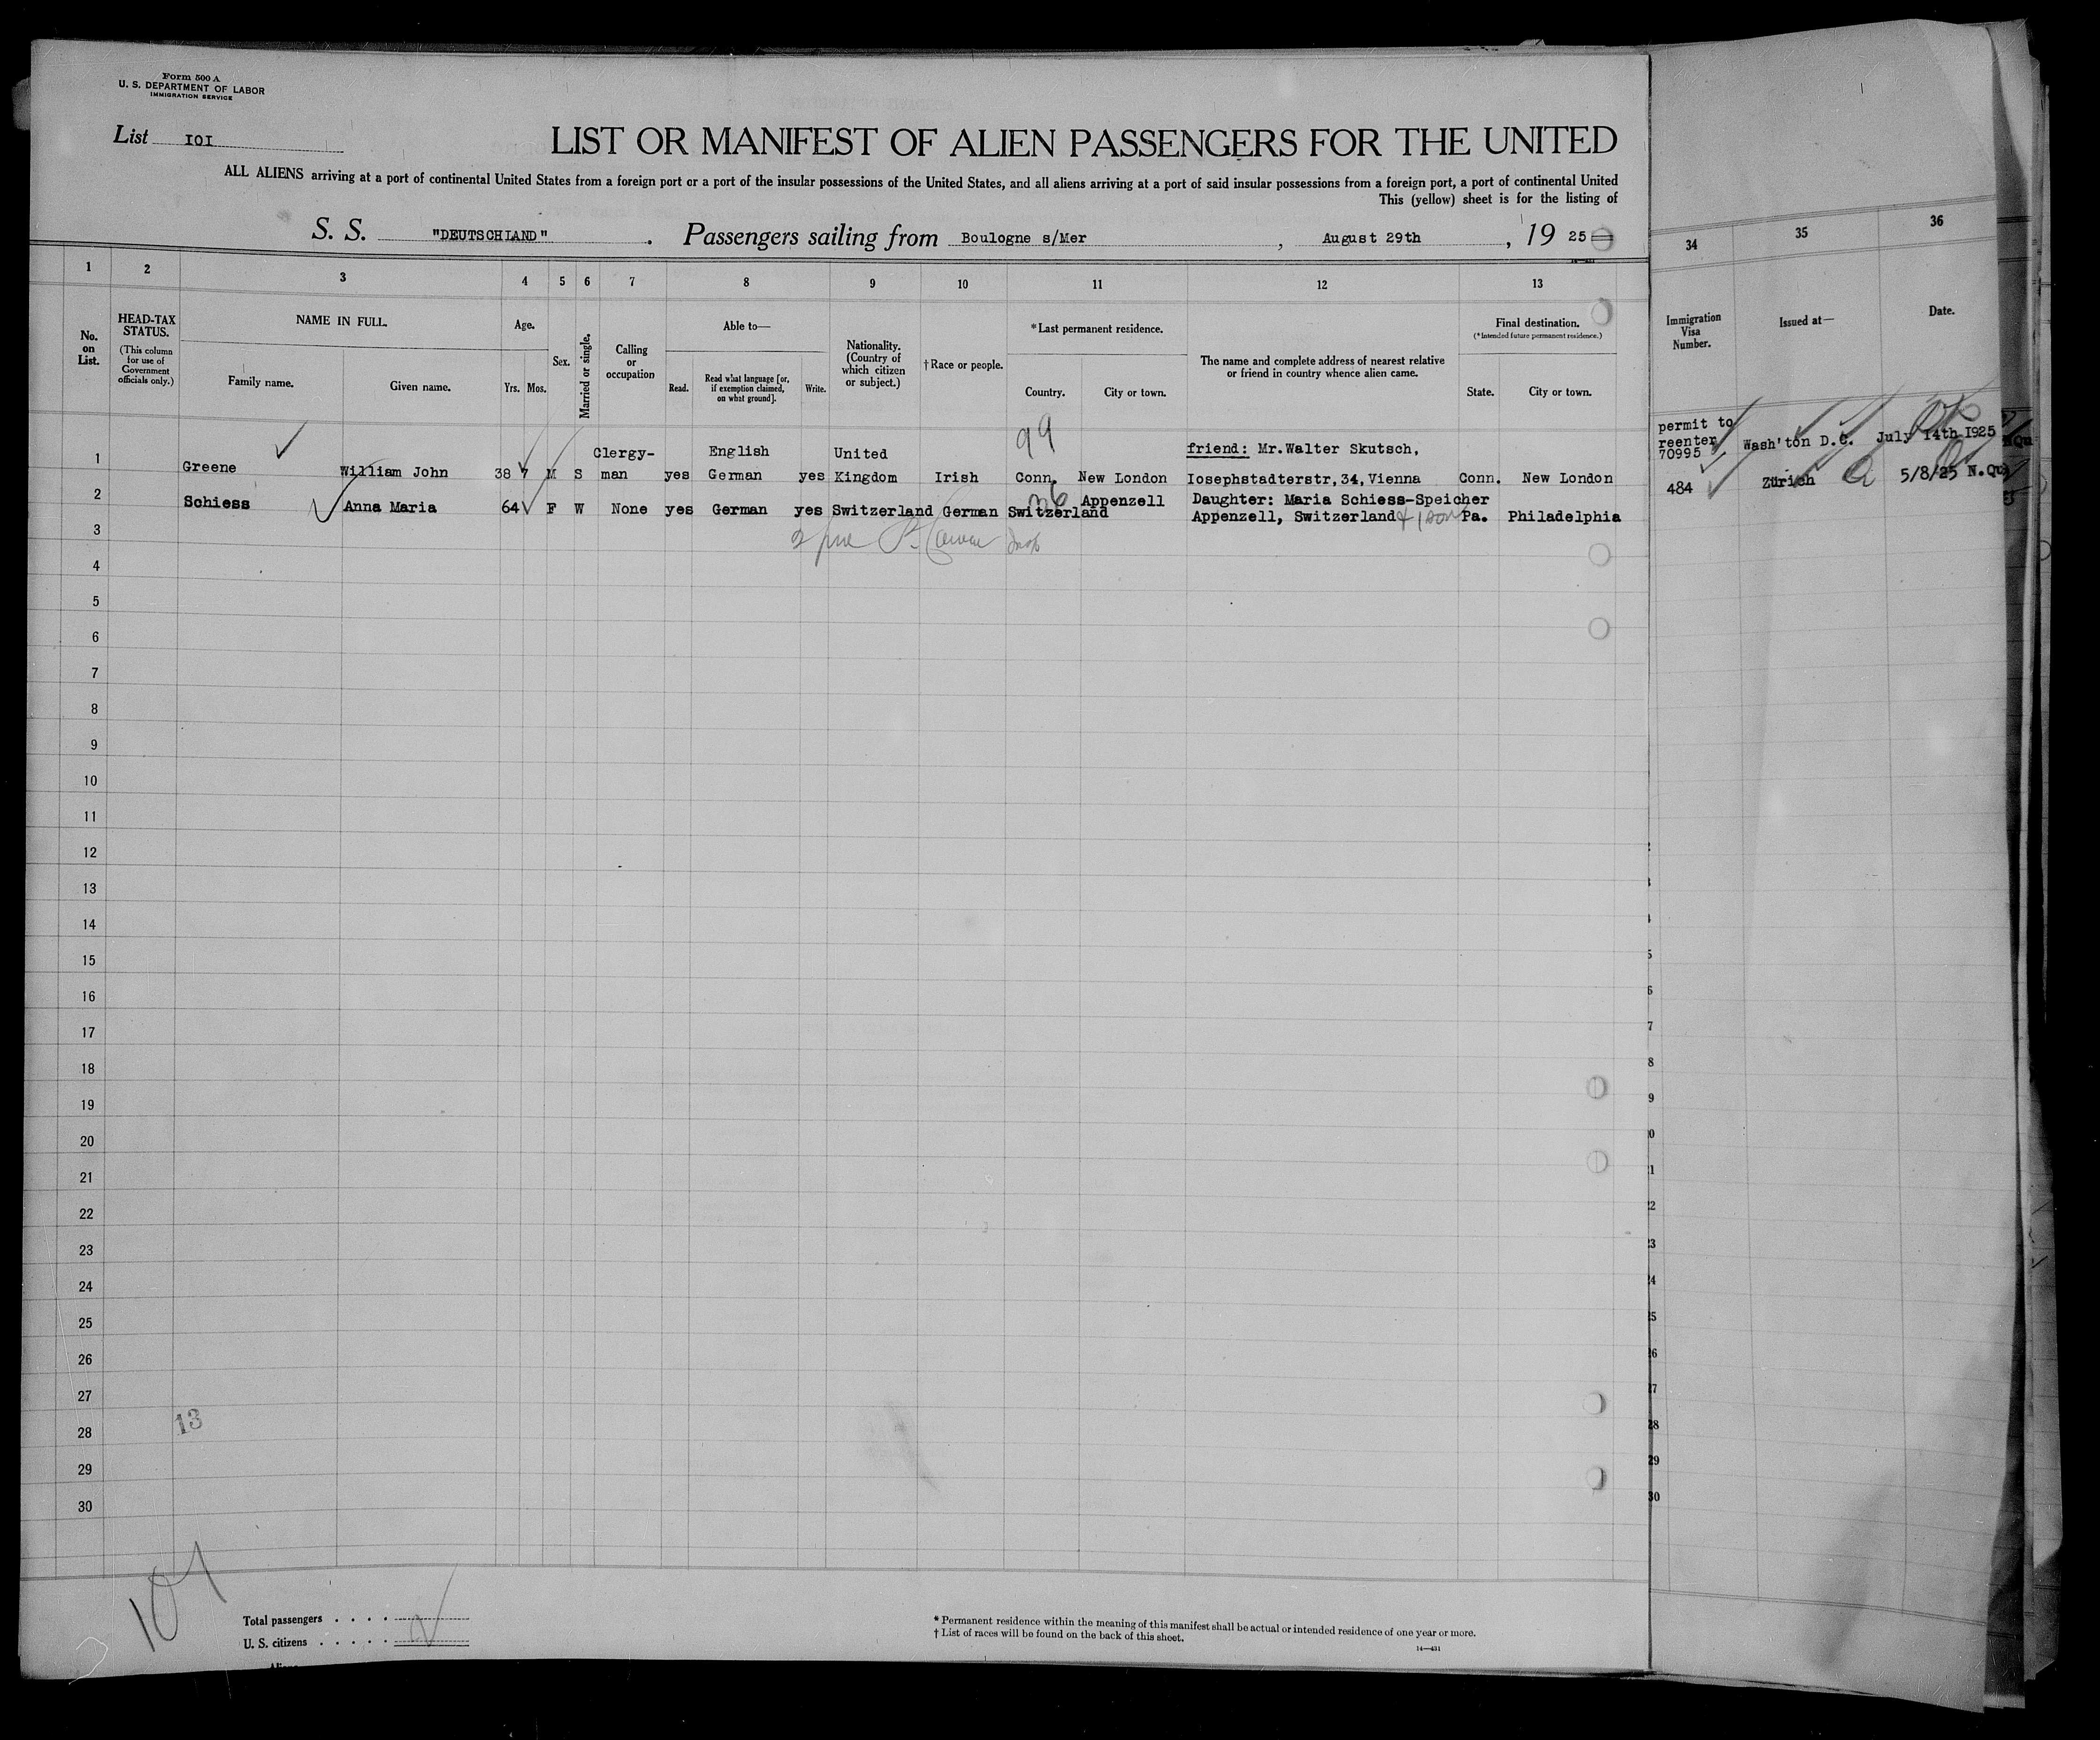 Form 500 A
U. S. DEPARTMENT OF LABOR
IMMIGRATION SERVICE
List IOI
LIST OR MANIFEST OF ALIEN PASSENGERS FOR THE UNITED
ALL ALIENS arriving at a port of continental United States from a foreign port or a port of the insular possessions of the United States, and all aliens arriving at a port of said insular possessions from a foreign port, a port of continental United
This (yellow) sheet is for the listing of
S. S. "DEUTSCHLAND". Passengers sailing from Boulogne s/Mer, August 29th, 19 25
1 2 3 4 5 6 7 8 9 10 11 12 13 34 35 36
No. on List.
HEAD-TAX STATUS.
(This column for use of Government officials only.)
NAME IN FULL.
Family name. Given name.
Age.
Yrs. Mos.
Sex.
Married or single.
Calling or occupation
Able to—
Read. Read what language [or, if exemption claimed, on what ground]. Write.
Nationality. (Country of which citizen or subject.)
† Race or people.
*Last permanent residence.
Country. City or town.
The name and complete address of nearest relative or friend in country whence alien came.
Final destination.
(*Intended future permanent residence.)
State. City or town.
Immigration Visa Number.
Issued at—
Date.
99
1 Greene William John 38 7 M S Clergy-man yes English German yes United Kingdom Irish Conn. New London friend: Mr.Walter Skutsch, Iosephstadterstr,34,Vienna Conn. New London permit to reenter 70995 Wash'ton D.C. July 14th I925
2 Schiess Anna Maria 64 F W None yes German yes Switzerland German Switzerland Appenzell Daughter: Maria Schiess-Speicher Appenzell, Switzerland Pa. Philadelphia 484 Zürich 5/8/25 N.Qu
3
4
5
6
7
8
9
10
11
12
13
14
15
16
17
18
19
20
21
22
23
24
25
26
27
28
29
30
13
101
Total passengers
U. S. citizens
* Permanent residence within the meaning of this manifest shall be actual or intended residence of one year or more.
† List of races will be found on the back of this sheet.
14—431